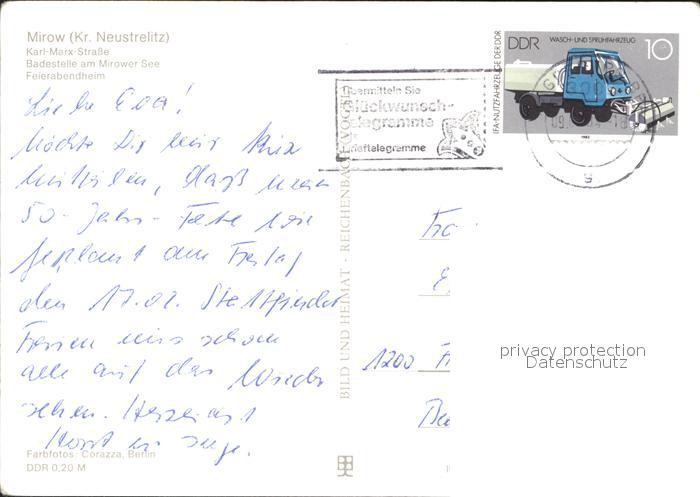 Mirow (Kr. Neustrelitz)
Karl-Marx-Straße
Badestelle am Mirower See
Feierabendheim
Liebe Eva!
Möchte Dir nur kurz
mitteilen, daß mein
50-Jahr-Feier wie
geplant am Freitag
den 17.02. Stattfindet
Freuen uns schon
alle auf das Wieder
sehen. Herzlichst
Horst
Farbfotos: Corazza, Berlin
DDR 0,20 M
BILD UND HEIMAT · REICHENBACH
Übermitteln Sie
Glückwunsch-
telegramme
Brieftelegramme
DDR
WASCH- UND SPRÜHFAHRZEUG
10
IFA-NUTZFAHRZEUGE DER DDR
1982
09.
g
1200
privacy protection
Datenschutz